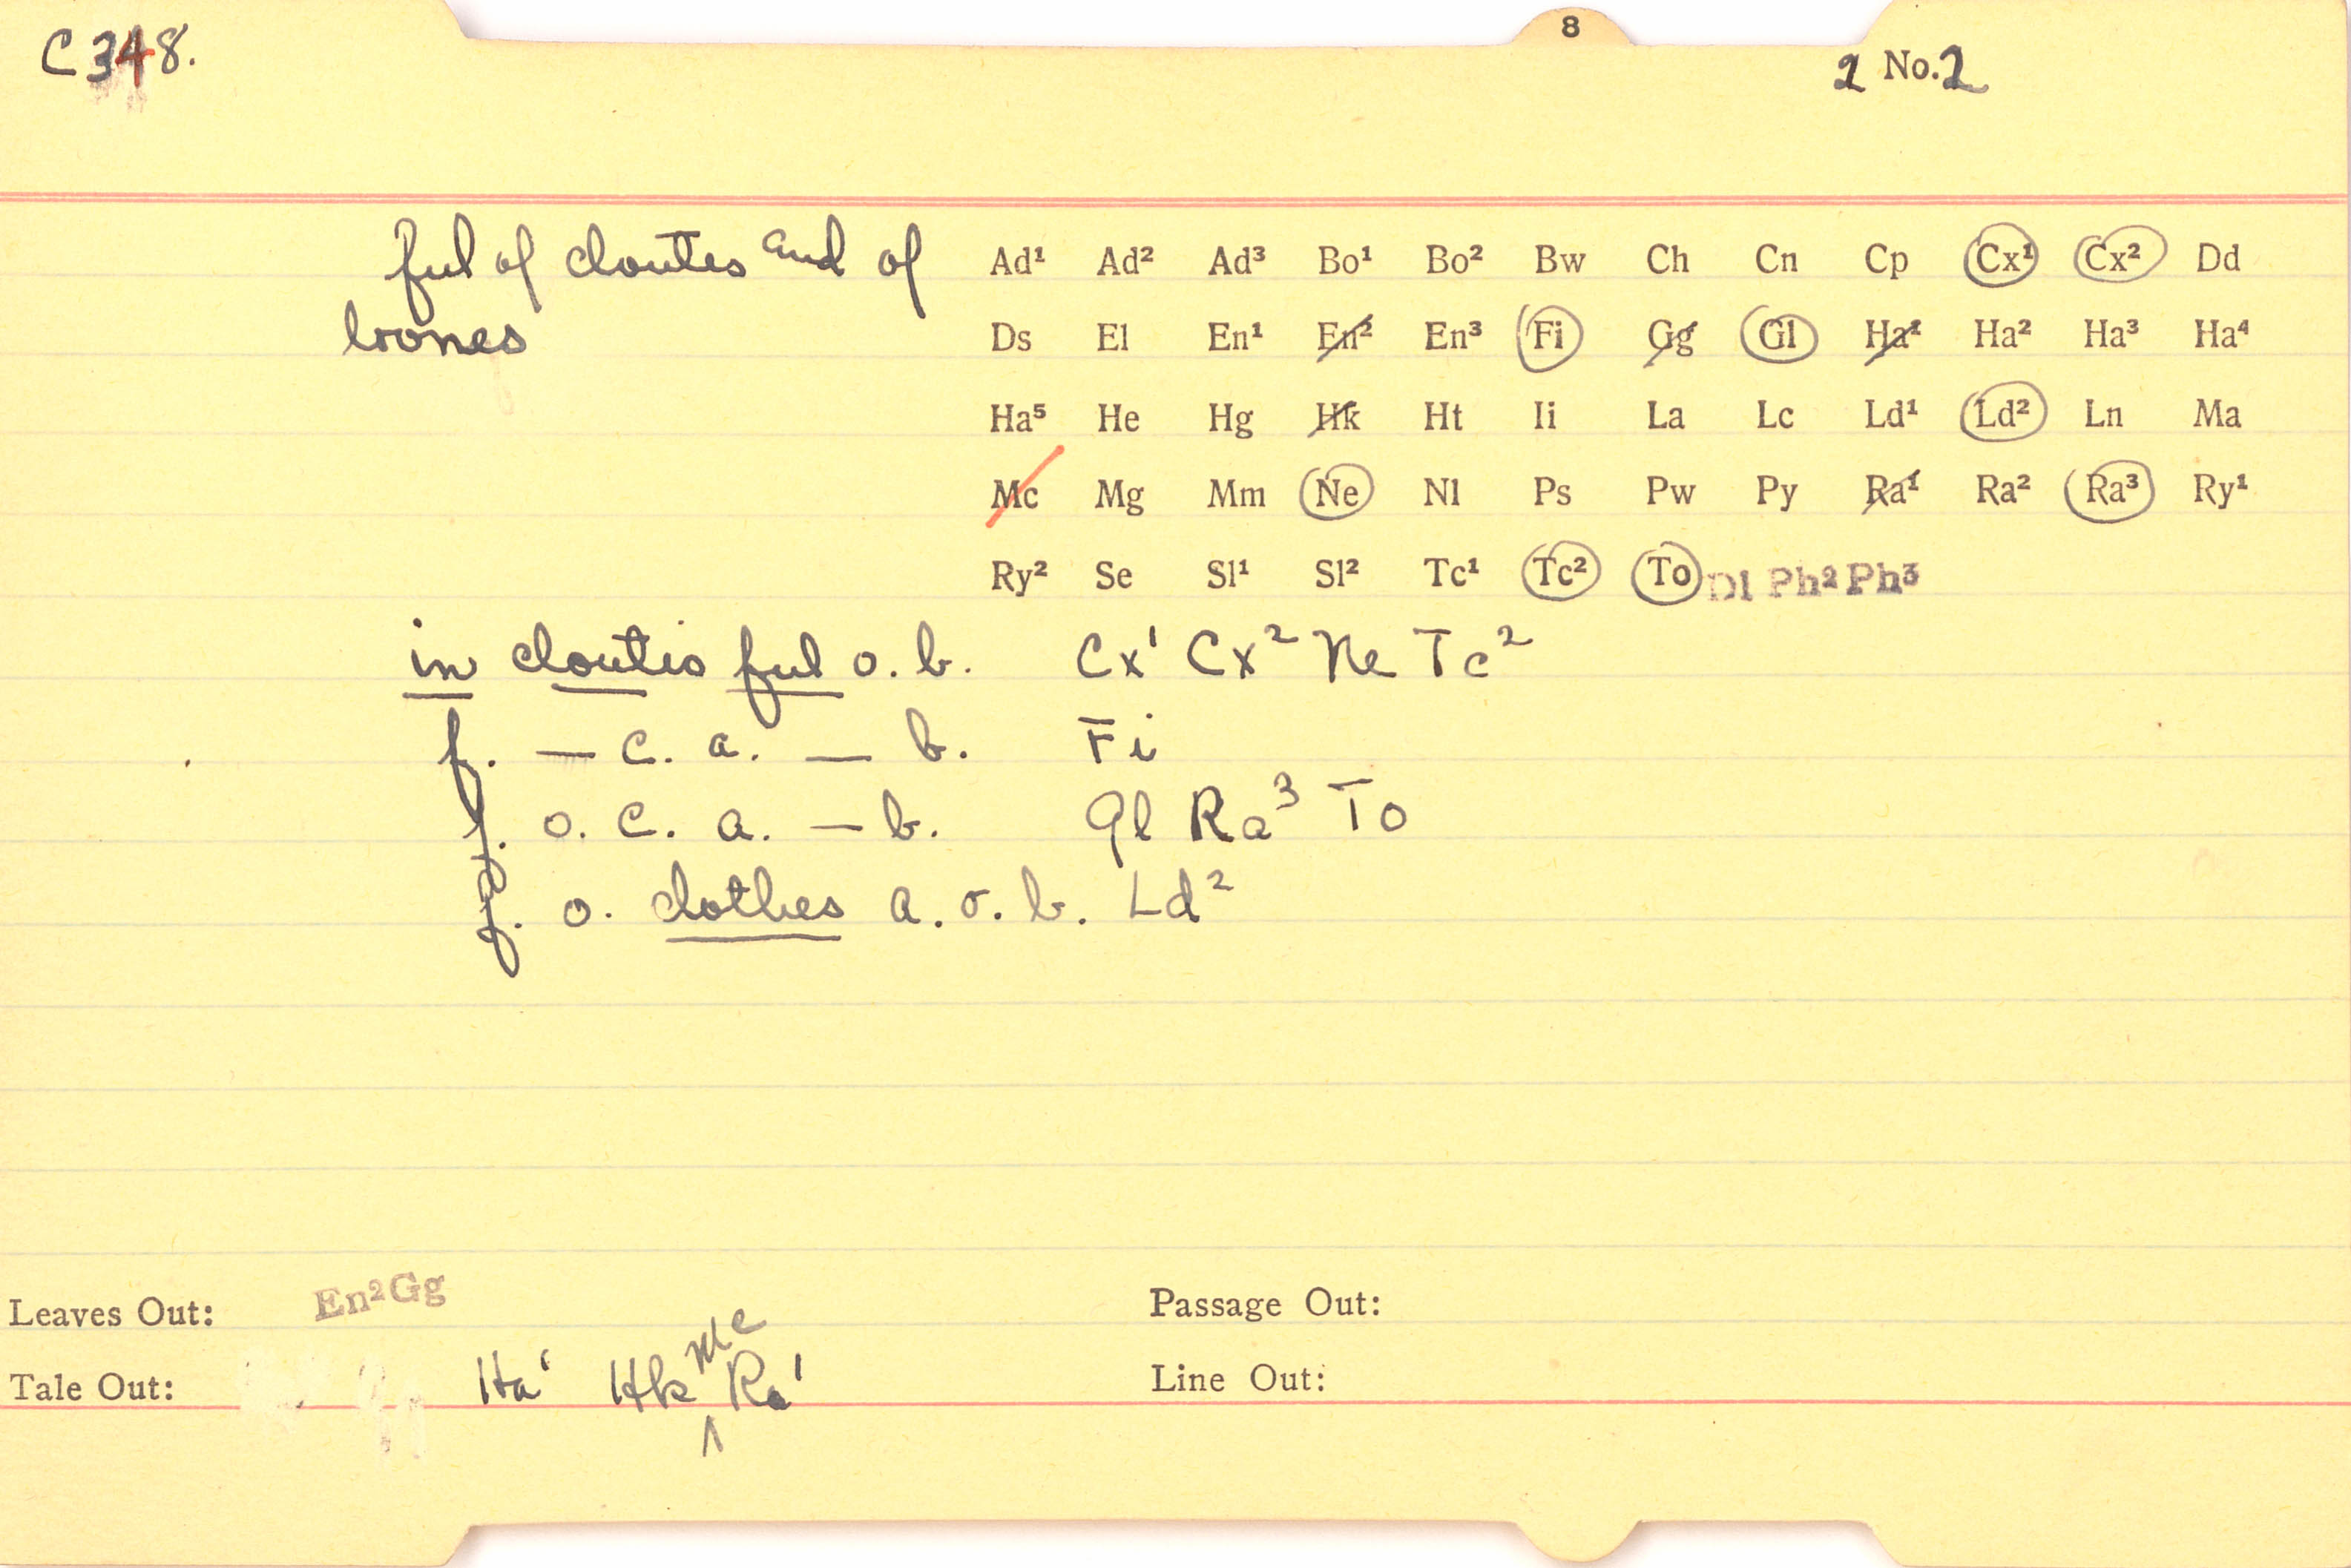 8
C 348.
2 No. 2
ful of cloutes and of
bones
Ad¹ Ad² Ad³ Bo¹ Bo² Bw Ch Cn Cp Cx¹ Cx² Dd
Ds El En¹ En² En³ Fi Gg Gl Ha¹ Ha² Ha³ Ha⁴
Ha⁵ He Hg Hk Ht Ii La Lc Ld¹ Ld² Ln Ma
Mc Mg Mm Ne Nl Ps Pw Py Ra¹ Ra² Ra³ Ry¹
Ry² Se Sl¹ Sl² Tc¹ Tc² To Dl Ph² Ph³
in cloutis ful o. b. Cx¹ Cx² Ne Tc²
f. — c. a. — b. Fi
f. o. c. a. — b. Gl Ra³ To
f. o. clothes a. o. b. Ld²
Leaves Out: En² Gg
Passage Out:
Tale Out: Ha¹ Hk Mc Ra¹
Line Out: